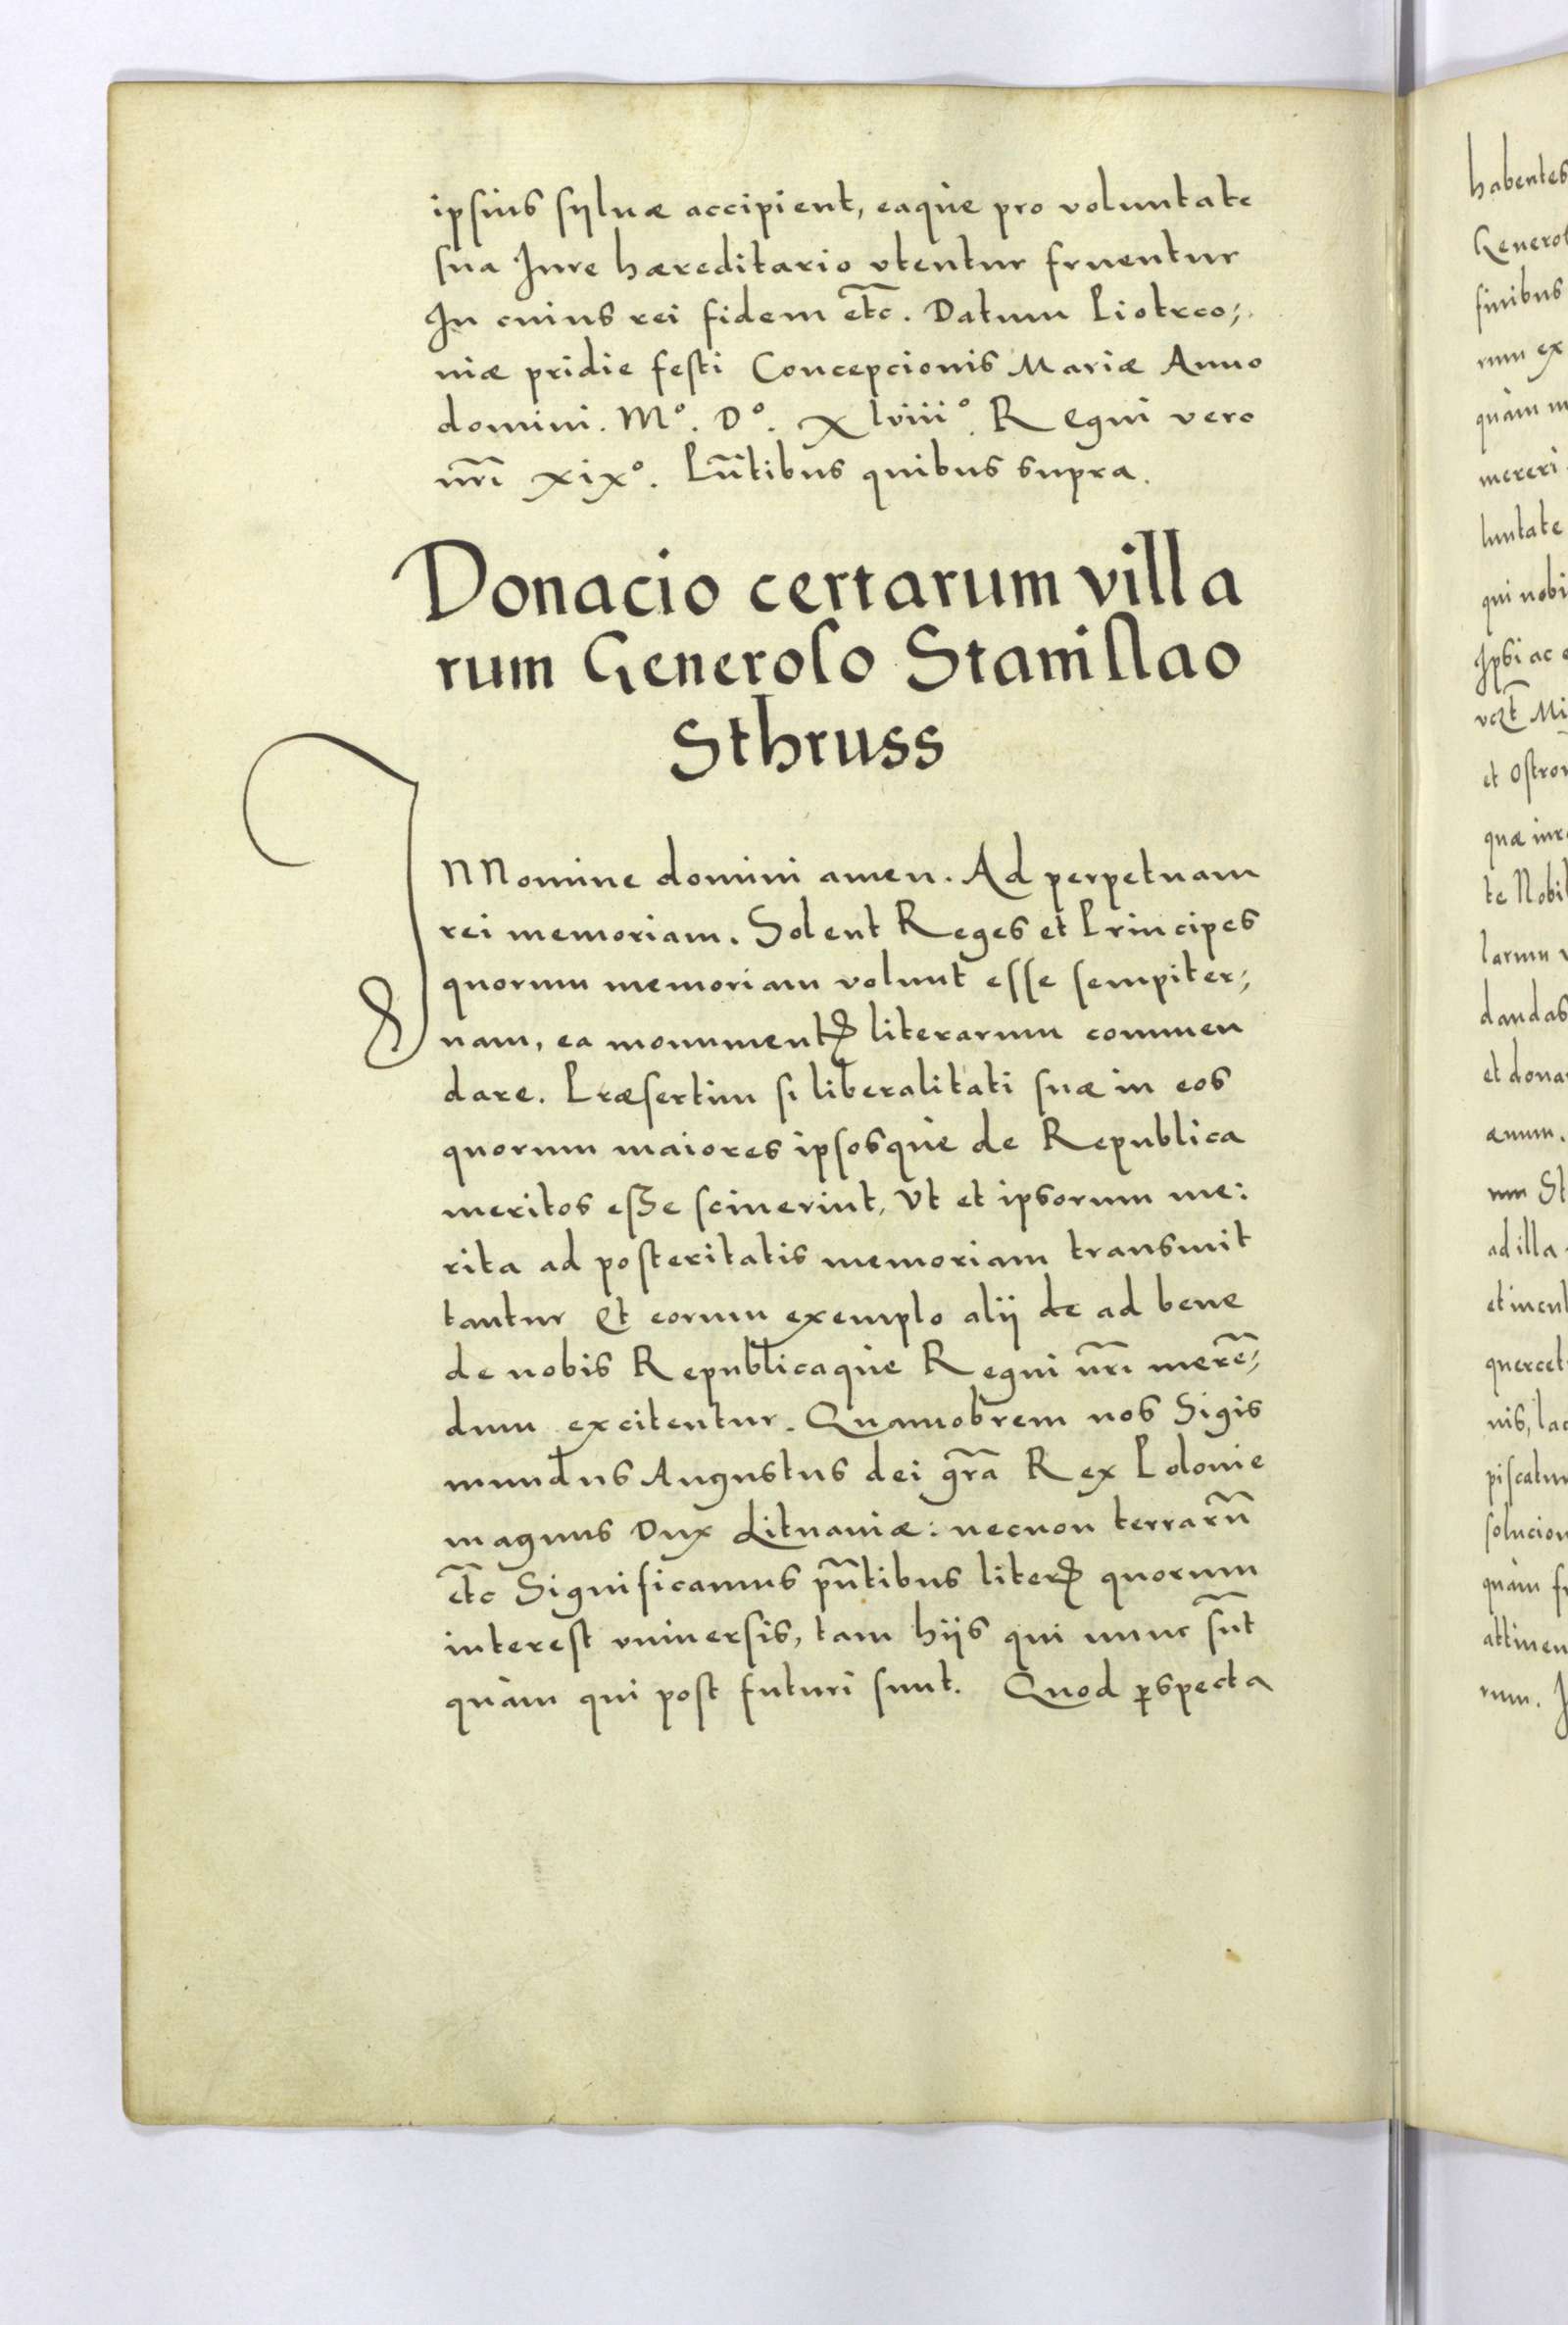 ipsius sylvæ accipient, eaque pro voluntate
sua Iure hæreditario vtentur fruentur
In cuius rei fidem etc̃. Datum Piotrco;
niæ pridie festi Concepcionis Mariæ Anno
domini. Mº. Dº. Xlviiiº. Regni vero
nr̃i xixº. Pñtibus quibus supra.
Donacio certarum villa
rum Generoso Stanislao
Sthruss
IN Nomine domini amen. Ad perpetuam
rei memoriam. Solent Reges et Principes
quorum memoriam volunt esse sempiter;
nam, ea monumentꝭ literarum commen
dare. Præsertim si liberalitati suæ in eos
quorum maiores ipsosque de Republica
meritos esse sciuerint, Vt et ipsorum me:
rita ad posteritatis memoriam transmit
tantur Et eorum exemplo alij de ad bene
de nobis Republicaque Regni nr̃i merẽ;
dum excitentur. Quamobrem nos Sigis
mundus Augustus dei gr̃a Rex Polonie
magnus Dux Lituaniæ: necnon terrarũ
etc̃ Significamus pñtibus literꝭ quorum
interest vniuersis, tam hijs qui nunc sũt
quàm qui post futuri sunt. Quod ꝑspecta
habentes
finibus
rum ex
quàm
mereri
luntate
qui
Ipsi ac
et
quæ
te
larum
dandas
et
annum.
rum
ad illa
nis,
quàm
rum.